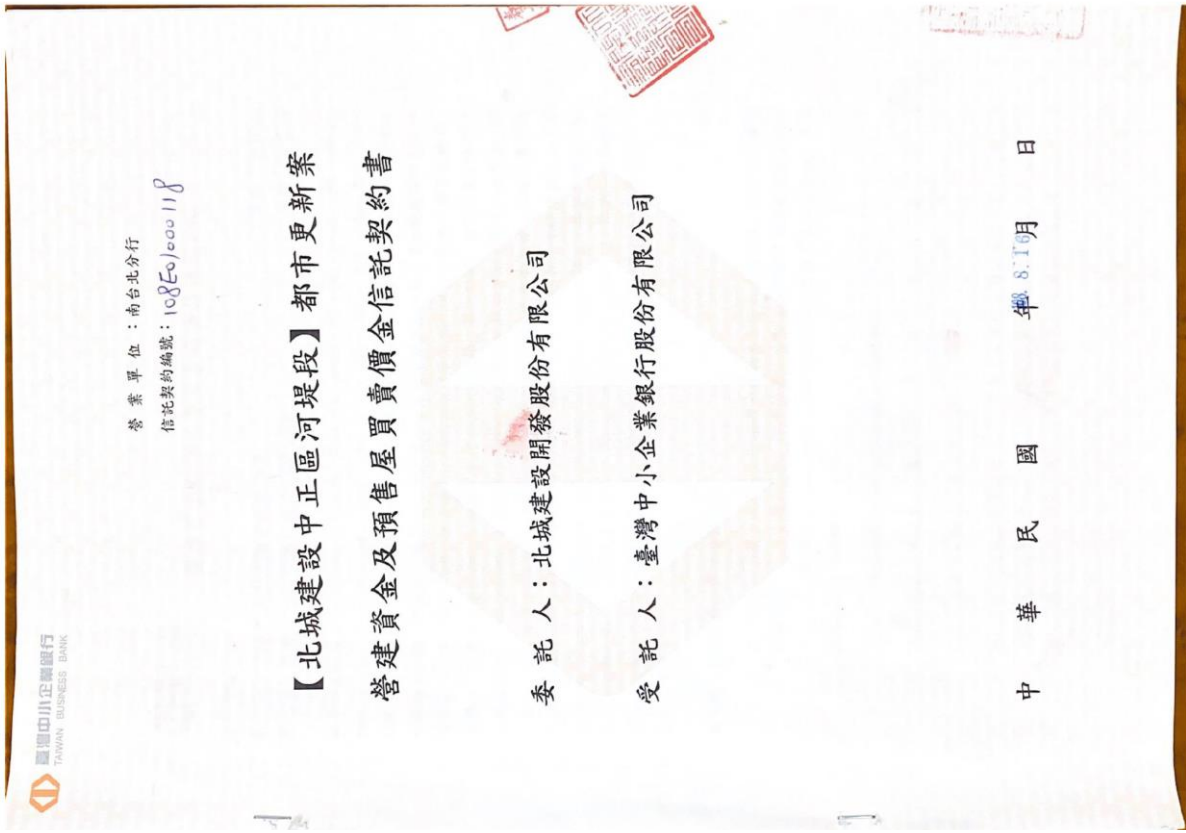 臺灣中小企業銀行
TAIWAN BUSINESS BANK
營業單位：南台北分行
信託契約編號：108E01000118
【北城建設中正區河堤段】都市更新案
營建資金及預售屋買賣價金信託契約書
委託人：北城建設開發股份有限公司
受託人：臺灣中小企業銀行股份有限公司
中華民國 年 8.16月 日